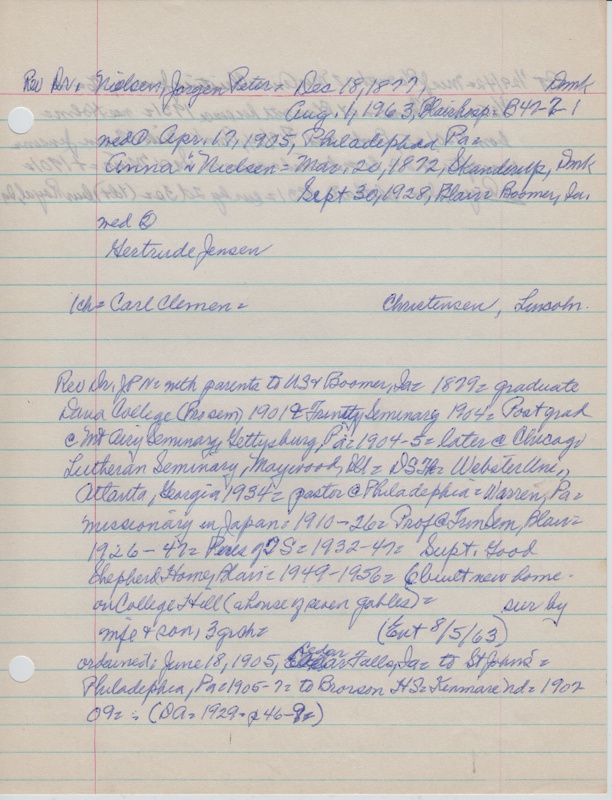 Rev Dr. Nielsen, Jorgen Peter = Dec 18, 1877, Dmk
Aug. 1, 1963, Blair hosp = B42-7-1
wed ① Apr. 17, 1905, Philadephia Pa =
Anna "L" Nielsen = Mar. 20, 1872, Skanderup, Dmk
Sept 30, 1928, Blair = Boomer, Ia.
wed ②
Gertrude Jensen
1ch = Carl Clemen = Christensen, Lincoln.
Rev Dr. JPN = with parents to US & Boomer, Ia = 1879 = graduate
Dana College (Pro sem) 1901 & Trinity Seminary 1904 = Post grad
@ Mt Airy Seminary, Gettysburg, Pa = 1904-5 = later @ Chicago
Lutheran Seminary, Maywood, Ill. = DS Th = Webster Uni.,
Atlanta, Georgia, 1934 = pastor @ Philadephia = Warren, Pa =
missionary in Japan = 1910-26 = Prof @ Trin Sem, Blair =
1926-47 = Pres of TS = 1932-47 = Supt. Good
Shepherd Home, Blair = 1949-1956 = (built new home
on College Hill (a house of seven gables) = sur by
wife & son, 3 grch = (Ent 8/5/63)
ordained: June 18, 1905, Cedar Falls, Ia = to St John's =
Philadephia, Pa = 1905-7 = to Brorson HS = Kenmare nd = 1907
09 = : (DA = 1929 - p 46-8 =)